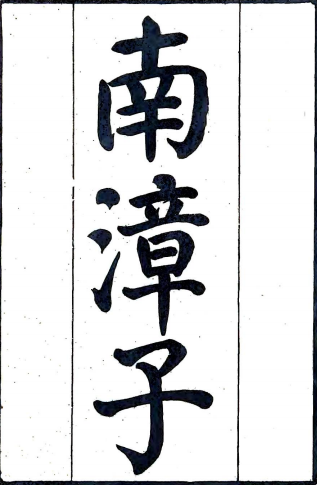 南漳子